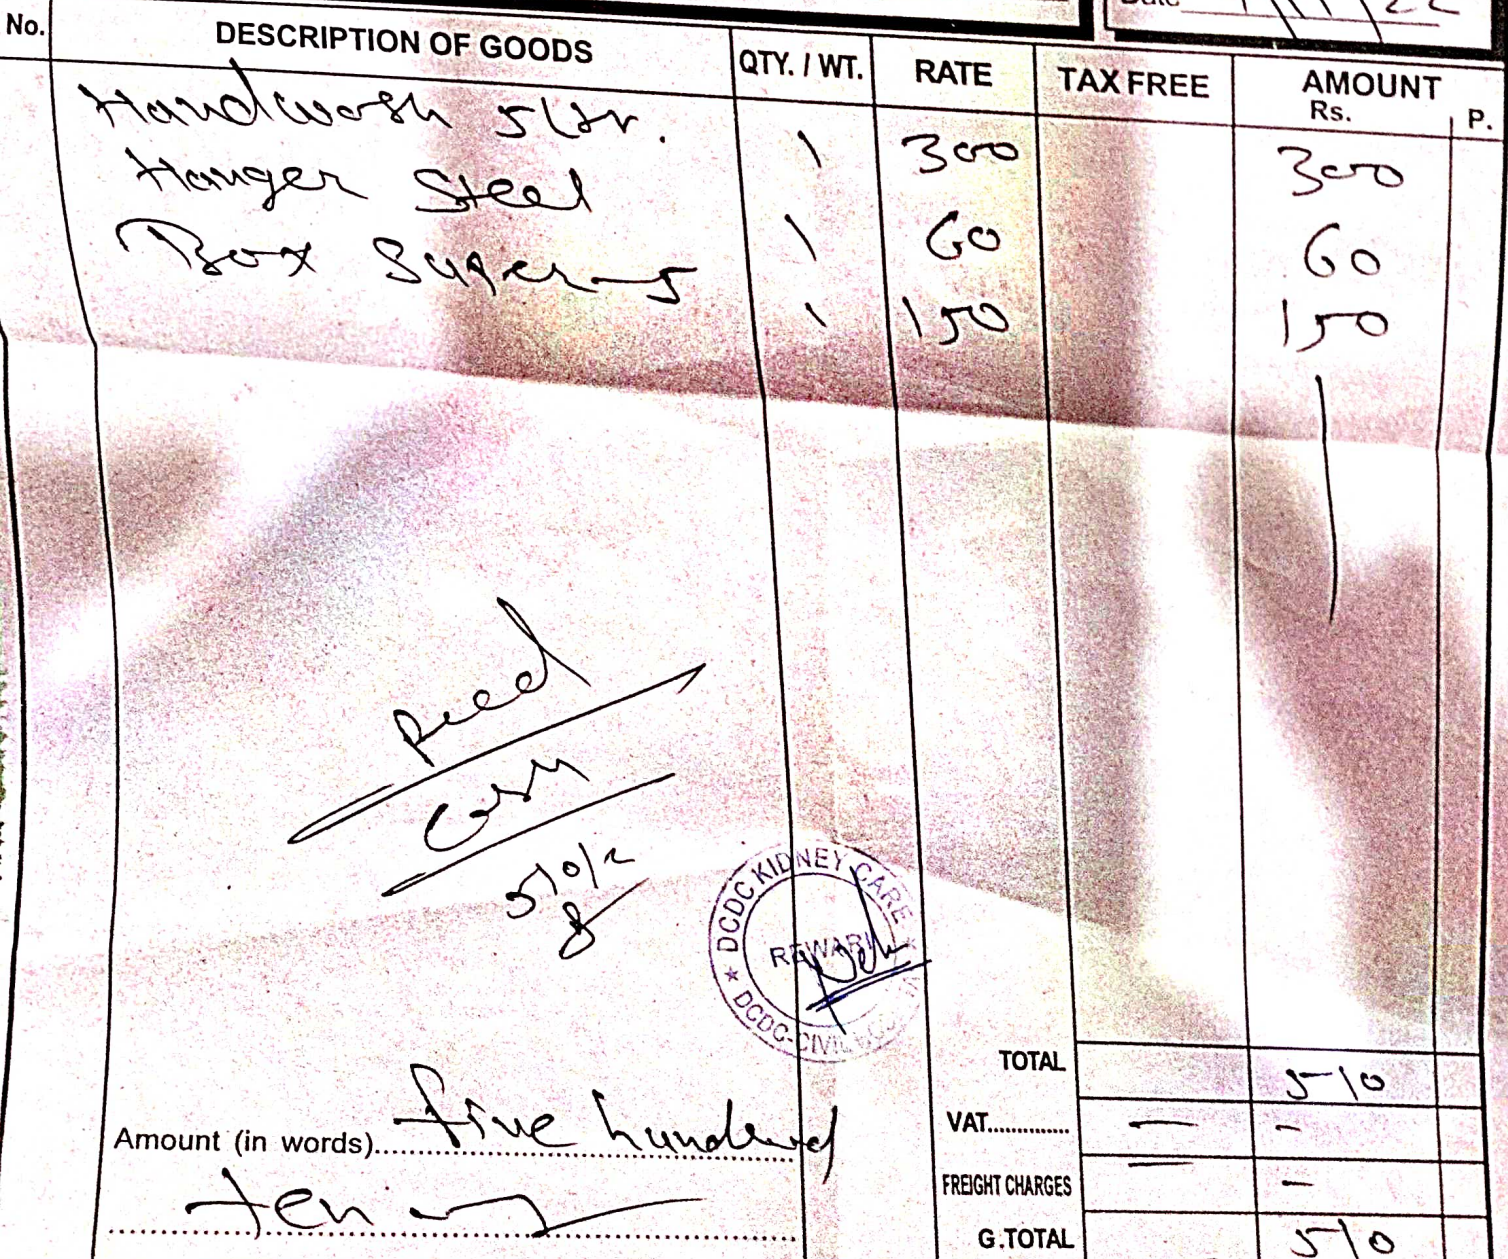 No. DESCRIPTION OF GOODS QTY. / WT. RATE TAX FREE AMOUNT
Rs. P.
Handwash 5 Ltr. 1 300 300
Hanger Steel 1 60 60
Box Super-5 1 150 150
Recd
Cash
510/-
DCDC KIDNEY CARE
REWARI
DCDC-CIVIL
TOTAL 510
Amount (in words) five hundred
VAT - -
ten
FREIGHT CHARGES - -
G.TOTAL 510